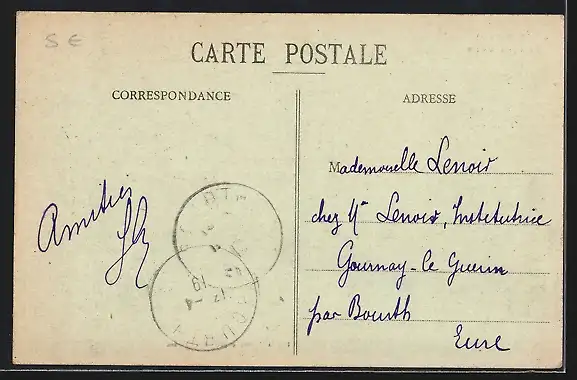 S E
CARTE POSTALE
CORRESPONDANCE
ADRESSE
Amitiés
Mademoiselle Lenoir
chez Mme Lenoir, Institutrice
Gournay-le Guérin
par Bourth
Eure